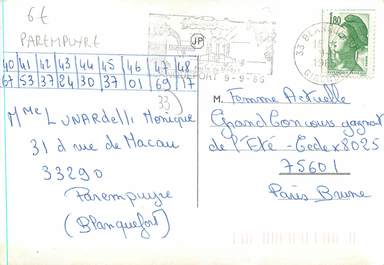 6€
PAREMPUYRE
40 41 42 43 44 45 46 47 48
67 53 37 24 30 37 01 69 17
33
Mme LUNARdelli Monique
31 d rue de Macau
33290
Parempuyre
(Blanquefort)
JP
9-9-86
33 BLANQUEFORT
1,80
M. Femme Actuelle
Grand Concours gagnant
de l'Eté - Cedex 8025
75601
Paris Brune